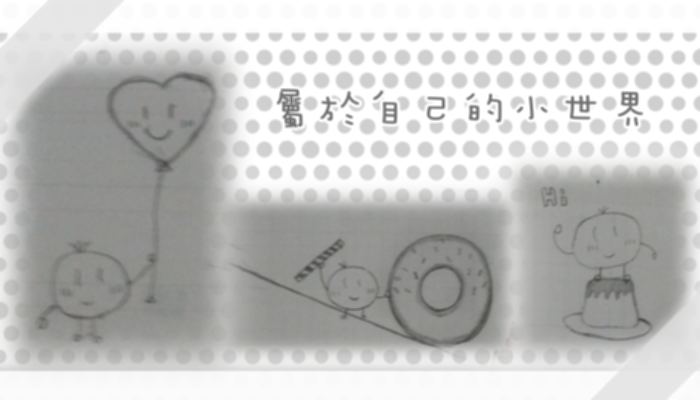 屬於自己的小世界
Hi